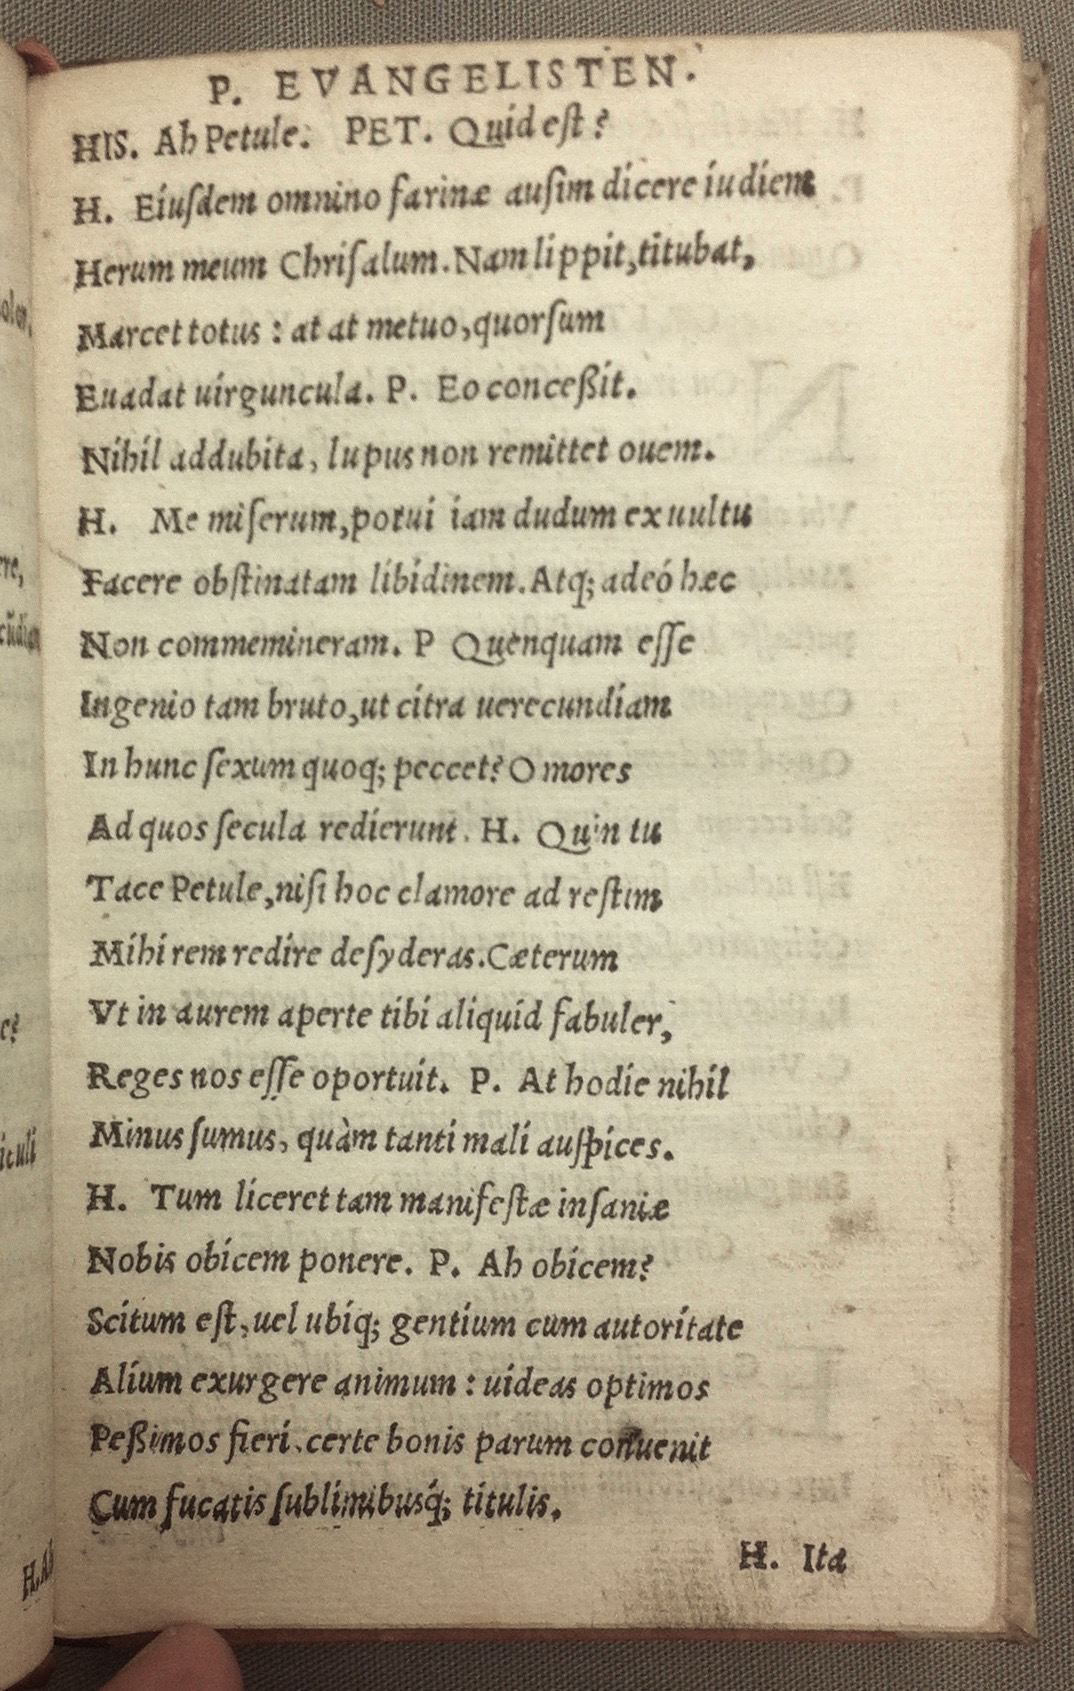 P. EVANGELISTEN.
HIS. Ah Petule. PET. Quid eſt?
H. Eiuſdem omnino farinæ auſim dicere iudicem
Herum meum Chriſalum. Nam lippit, titubat,
Marcet totus : at at metuo, quorſum
Euadat uirguncula. P. Eo conceßit.
Nihil addubita, lupus non remittet ouem.
H. Me miſerum, potui iam dudum ex uultu
Facere obſtinatam libidinem. Atq; adeó hæc
Non commemineram. P Quenquam eſſe
Ingenio tam bruto, ut citra uerecundiam
In hunc ſexum quoq; peccet? O mores
Ad quos ſecula redierunt. H. Quin tu
Tace Petule, niſi hoc clamore ad reſtim
Mihi rem redire deſyderas. Cæterum
Vt in aurem aperte tibi aliquid fabuler,
Reges nos eſſe oportuit. P. At hodie nihil
Minus ſumus, quàm tanti mali auſpices.
H. Tum liceret tam manifeſtæ inſaniæ
Nobis obicem ponere. P. Ah obicem?
Scitum eſt, uel ubiq; gentium cum autoritate
Alium exurgere animum : uideas optimos
Peßimos fieri. certe bonis parum conuenit
Cum fucatis ſublimibusq́; titulis.
H. Ita